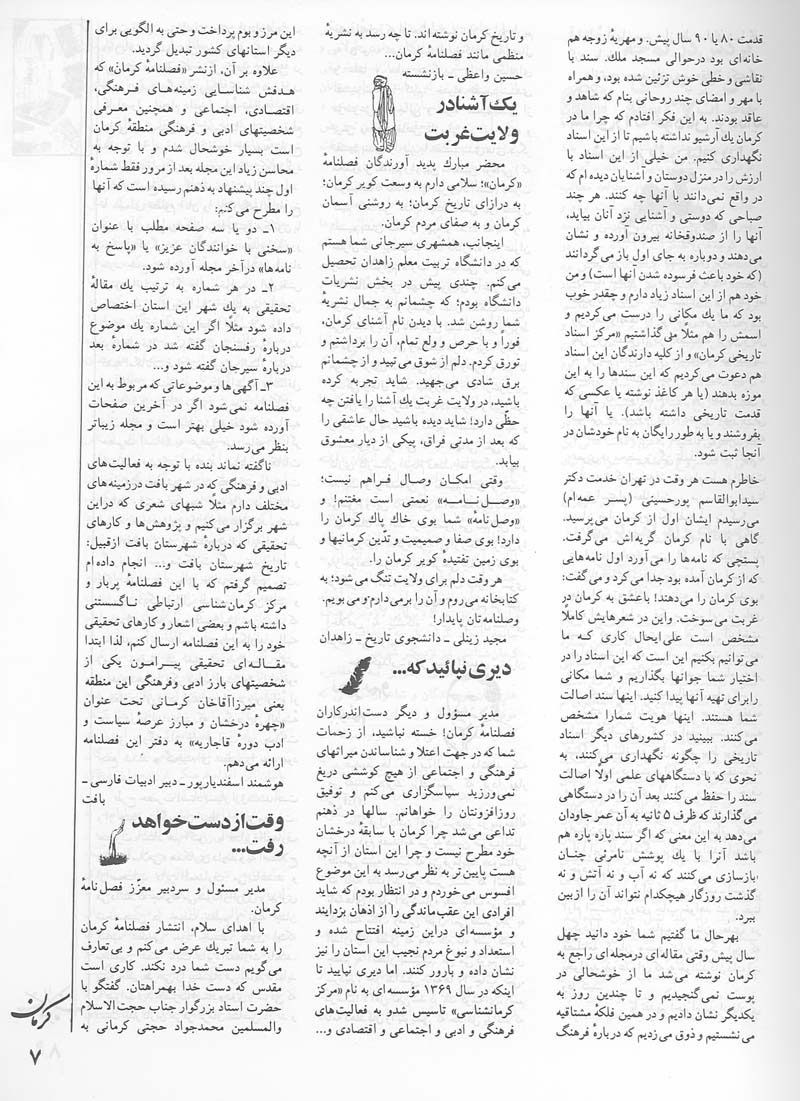 قدمت ۸۰ یا ۹۰ سال پیش. و مهریهٔ زوجه هم
خانه‌ای بود درحوالی مسجد ملك. سند با
نقاشی و خطی خوش تزئین شده بود، و همراه
با مهر و امضای چند روحانی بنام که شاهد و
عاقد بودند. به این فکر افتادم که چرا ما در
کرمان یك آرشیو نداشته باشیم تا از این اسناد
نگهداری کنیم. من خیلی از این اسناد با
ارزش را در منزل دوستان و آشنایان دیده ام که
در واقع نمی‌دانند با آنها چه کنند. هر چند
صباحی که دوستی و آشنایی نزد آنان بیاید،
آنها را از صندوقخانه بیرون آورده و نشان
می‌دهند و دوباره به جای اول باز می‌گردانند
(که خود باعث فرسوده شدن آنها است) و من
خود هم از این اسناد زیاد دارم و چقدر خوب
بود که ما یك مکانی را درست می‌کردیم و
اسمش را هم مثلاً می‌گذاشتیم «مرکز اسناد
تاریخی کرمان» و از کلیه دارندگان این اسناد
هم دعوت می‌کردیم که این سندها را به این
موزه بدهند (یا هر کاغذ نوشته یا عکسی که
قدمت تاریخی داشته باشد). یا آنها را
بفروشند و یا به طور رایگان به نام خودشان در
آنجا ثبت شود.
خاطرم هست هر وقت در تهران خدمت دکتر
سیدابوالقاسم پورحسینی (پسر عمه‌ام)
می‌رسیدم ایشان اول از کرمان می‌پرسید.
گاهی با نام کرمان گریه‌اش می‌گرفت.
پستچی که نامه‌ها را می‌آورد اول نامه‌هایی
که از کرمان آمده بود جدا می‌کرد و می‌گفت:
بوی کرمان را می‌دهند! باعشق به کرمان در
غربت می‌سوخت. واین در شعرهایش کاملاً
مشخص است علی‌ایحال کاری که ما
می‌توانیم بکنیم این است که این اسناد را در
اختیار شما جوانها بگذاریم و شما مکانی
رابرای تهیه آنها پیدا کنید. اینها سند اصالت
شما هستند. اینها هویت شمارا مشخص
می‌کنند. ببینید در کشورهای دیگر اسناد
تاریخی را چگونه نگهداری می‌کنند، به
نحوی که با دستگاههای علمی اولاً اصالت
سند را حفظ می‌کنند بعد آن را در دستگاهی
می‌گذارند که ظرف ۵ ثانیه به آن عمر جاودان
می‌دهد به این معنی که اگر سند پاره پاره هم
باشد آنرا با یك پوشش نامرئی چنان
بازسازی می‌کنند که نه آب و نه آتش و نه
گذشت روزگار هیچکدام نتواند آن را ازبین
ببرد.
بهرحال ما گفتیم شما خود دانید چهل
سال پیش وقتی مقاله‌ای درمجله‌ای راجع به
کرمان نوشته می‌شد ما از خوشحالی در
پوست نمی‌گنجیدیم و تا چندین روز به
یکدیگر نشان دادیم و در همین فلکهٔ مشتاقیه
می‌نشستیم و ذوق می‌زدیم که دربارهٔ فرهنگ
و تاریخ کرمان نوشته‌اند. تا چه رسد به نشریهٔ
منظمی مانند فصلنامهٔ کرمان...
حسین واعظی ـ بازنشسته
یك آشنا در
ولایت غربت
محضر مبارك پدید آورندگان فصلنامهٔ
«کرمان»؛ سلامی دارم به وسعت کویر کرمان؛
به درازای تاریخ کرمان؛ به روشنی آسمان
کرمان و به صفای مردم کرمان.
اینجانب، همشهری سیرجانی شما هستم
که در دانشگاه تربیت معلم زاهدان تحصیل
می‌کنم. چندی پیش در بخش نشریات
دانشگاه بودم؛ که چشمانم به جمال نشریهٔ
شما روشن شد. با دیدن نام آشنای کرمان،
فوراً و با حرص و ولع تمام، آن را برداشتم و
تورق کردم. دلم از شوق می‌تپید و از چشمانم
برق شادی می‌جهید. شاید تجربه کرده
باشید، در ولایت غربت یك آشنا را یافتن چه
حظّی دارد! شاید دیده باشید حال عاشقی را
که بعد از مدتی فراق، پیکی از دیار معشوق
بیابد.
وقتی امکان وصال فراهم نیست؛
«وصل‌نامه» نعمتی است مغتنم! و
«وصل نامهٔ» شما بوی خاك پاك کرمان را
دارد! بوی صفا و صمیمیت و تدّین کرمانیها و
بوی زمین تفتیدهٔ کویر کرمان را.
هر وقت دلم برای ولایت تنگ می‌شود؛ به
کتابخانه می‌روم و آن را برمی‌دارم و می‌بویم.
وصلنامه تان پایدار!
مجید زینلی ـ دانشجوی تاریخ ـ زاهدان
دیری نپائید که...
مدیر مسؤول و دیگر دست‌اندرکاران
فصلنامهٔ کرمان! خسته نباشید، از زحمات
شما که در جهت اعتلا و شناساندن میراثهای
فرهنگی و اجتماعی از هیچ کوششی دریغ
نمی‌ورزید سپاسگزاری می‌کنم و توفیق
روزافزونتان را خواهانم. سالها در ذهنم
تداعی می‌شد چرا کرمان با سابقهٔ درخشان
خود مطرح نیست و چرا این استان از آنچه
هست پایین‌تر به نظر می‌رسد به این موضوع
افسوس می‌خوردم و در انتظار بودم که شاید
افرادی این عقب‌ماندگی را از اذهان بزدایند
و مؤسسه‌ای دراین زمینه افتتاح شده و
استعداد و نبوغ مردم نجیب این استان را نیز
نشان داده و بارور کنند. اما دیری نپایید تا
اینکه در سال ۱۳۶۹ مؤسسه‌ای به نام «مرکز
کرمانشناسی» تاسیس شدو به فعالیت‌های
فرهنگی و ادبی و اجتماعی و اقتصادی و...
این مرز و بوم پرداخت و حتی به الگویی برای
دیگر استانهای کشور تبدیل گردید.
علاوه بر آن، ازنشر «فصلنامهٔ کرمان» که
هدفش شناسایی زمینه‌های فرهنگی،
اقتصادی، اجتماعی و همچنین معرفی
شخصیتهای ادبی و فرهنگی منطقهٔ کرمان
است بسیار خوشحال شدم و با توجه به
محاسن زیاد این مجله بعد از مرور فقط شمارهٔ
اول چند پیشنهاد به ذهنم رسیده است که آنها
را مطرح می‌کنم:
۱ـ دو یا سه صفحه مطلب با عنوان
«سخنی با خوانندگان عزیز» یا «پاسخ به
نامه‌ها» درآخر مجله آورده شود.
۲ـ در هر شماره به ترتیب یك مقالهٔ
تحقیقی به یك شهر این استان اختصاص
داده شود مثلاً اگر این شماره یك موضوع
دربارهٔ رفسنجان گفته شد در شمارهٔ بعد
دربارهٔ سیرجان گفته شود و...
۳ـ آگهی‌ها و موضوعاتی که مربوط به این
فصلنامه نمی‌شود اگر در آخرین صفحات
آورده شود خیلی بهتر است و مجله زیباتر
بنظر می‌رسد.
ناگفته نماند بنده با توجه به فعالیت‌های
ادبی و فرهنگی که در شهر بافت درزمینه‌های
مختلف دارم مثلاً شبهای شعری که دراین
شهر برگزار می‌کنیم و پژوهش‌ها و کارهای
تحقیقی که دربارهٔ شهرستان بافت ازقبیل:
تاریخ شهرستان بافت و... انجام داده‌ام
تصمیم گرفتم که با این فصلنامهٔ پربار و
مرکز کرمان‌شناسی ارتباطی ناگسستنی
داشته باشم و بعضی اشعار و کارهای تحقیقی
خود را به این فصلنامه ارسال کنم، لذا ابتدا
مقاله‌ای تحقیقی پیرامون یکی از
شخصیتهای بارز ادبی وفرهنگی این منطقه
یعنی میرزاآقاخان کرمانی تحت عنوان
«چهرهٔ درخشان و مبارز عرصهٔ سیاست و
ادب دورهٔ قاجاریه» به دفتر این فصلنامه
ارائه می‌دهم.
هوشمند اسفندیارپور ـ دبیر ادبیات فارسی ـ
بافت
وقت از دست خواهد
رفت...
مدیر مسئول و سردبیر معزّز فصل نامهٔ
کرمان.
با اهدای سلام، انتشار فصلنامهٔ کرمان
را به شما تبریك عرض می‌کنم و بی‌تعارف
می‌گویم دست شما درد نکند. کاری است
مقدس که دست خدا بهمراهتان. گفتگو با
حضرت استاد بزرگوار جناب حجت الاسلام
والمسلمین محمدجواد حجتی کرمانی به
کرمان
۷